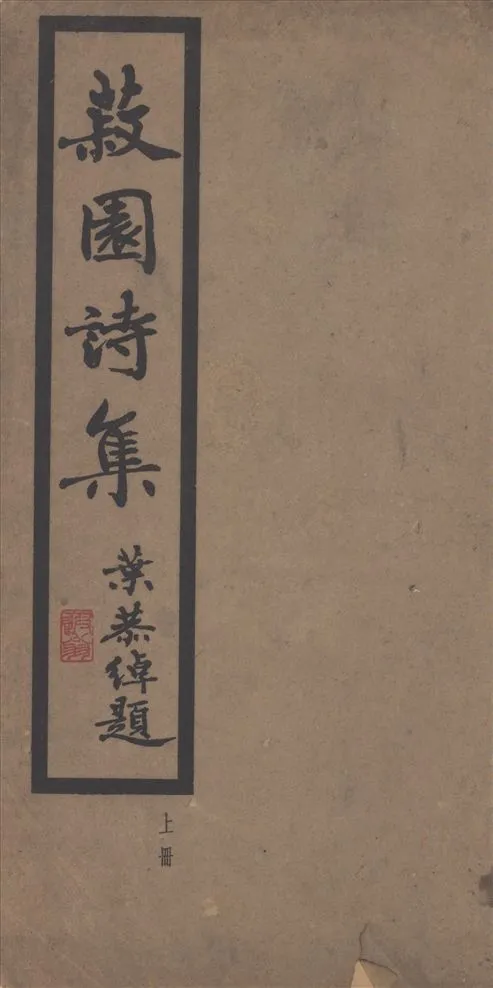 菽園詩集
葉恭綽題
上冊